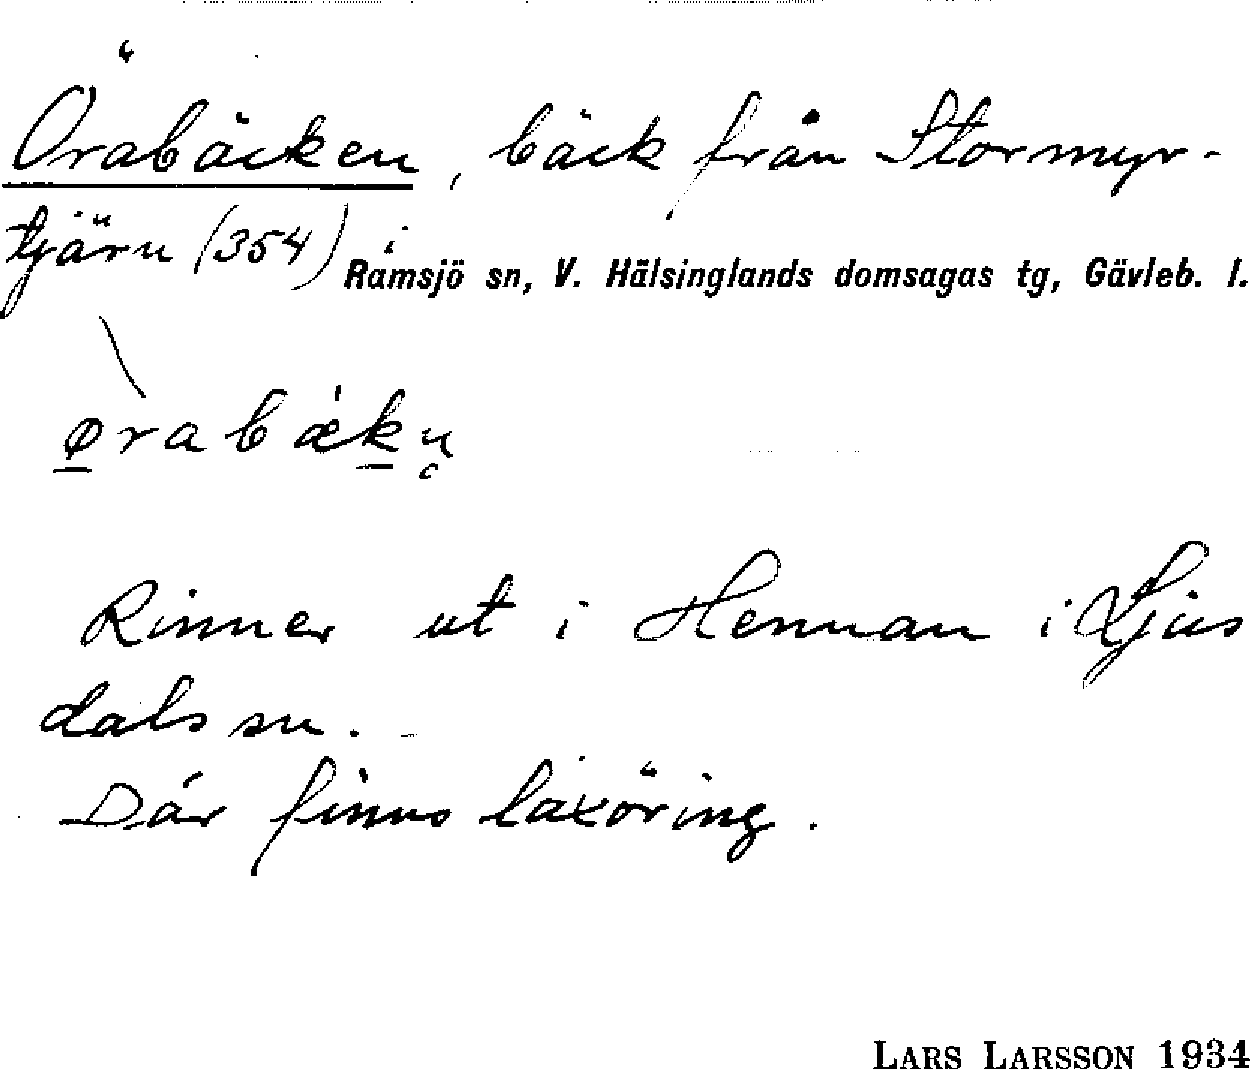 Örabäcken, bäck från Stormyr-
tjärn (354) i
Ramsjö sn, V. Hälsinglands domsagas tg, Gävleb. l.
ø̱rabæ̀ḵn̥
Rinner ut i Hennan i Ljus
dals sn. -
Där finns laxöring.
LARS LARSSON 1934